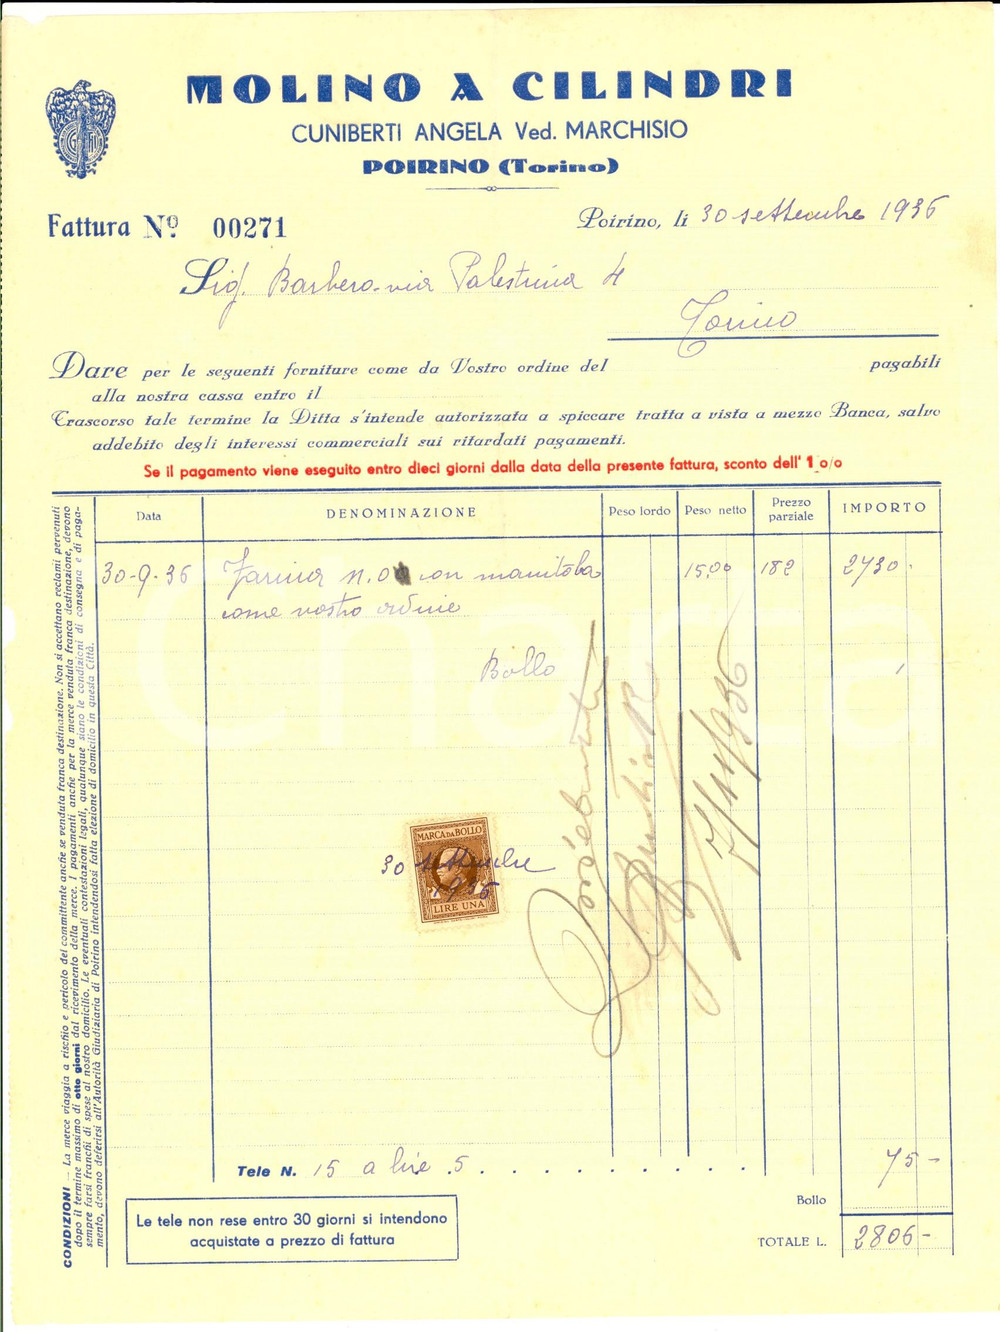 MOLINO A CILINDRI
CUNIBERTI ANGELA Ved. MARCHISIO
POIRINO (Torino)
Fattura Nº 00271
Poirino, li 30 settembre 1936
Sig. Barbero - via Palestrina 4
Torino
Dare per le seguenti forniture come da Vostro ordine del pagabili
alla nostra cassa entro il
Trascorso tale termine la Ditta s'intende autorizzata a spiccare tratta a vista a mezzo Banca, salvo
addebito degli interessi commerciali sui ritardati pagamenti.
Se il pagamento viene eseguito entro dieci giorni dalla data della presente fattura, sconto dell' 1 o/o
Data DENOMINAZIONE Peso lordo Peso netto Prezzo parziale IMPORTO
30-9-36 Farina n. 0 con manitoba 15,00 182 2730.
come vostro ordine
Bollo 1
MARCA DA BOLLO
30 settembre
1936
LIRE UNA
7/11/936
Tele N. 15 a lire 5 75-
Bollo
TOTALE L. 2806-
Le tele non rese entro 30 giorni si intendono
acquistate a prezzo di fattura
CONDIZIONI - La merce viaggia a rischio e pericolo del committente anche se venduta franca destinazione. Non si accettano reclami pervenuti
dopo il termine massimo di otto giorni dal ricevimento della merce. I pagamenti anche per la merce venduta franca destinazione, devono
sempre farsi franchi di spese al nostro domicilio. Le eventuali contestazioni legali, qualunque siano le condizioni di consegna e di paga-
mento, devono deferirsi all'Autorità Giudiziaria di Poirino intendendosi fatta elezione di domicilio in questa Città.